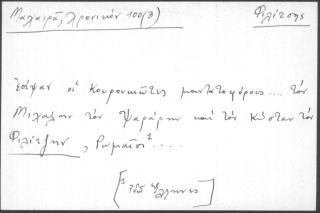 Μαχαιρᾶς, Χρονικόν 100(3) Φιλίτσης
Ἐσάψαν οἱ Κουρουνιῶτες μαντατοφόρους.... τὸν
Μιχάλην τὸν Ψαράρην καὶ τὸν Κώσταν τὸν
Φιλίτζην, Ῥωμαῖοι¹....
[¹ τοὺς Ἕλληνες]